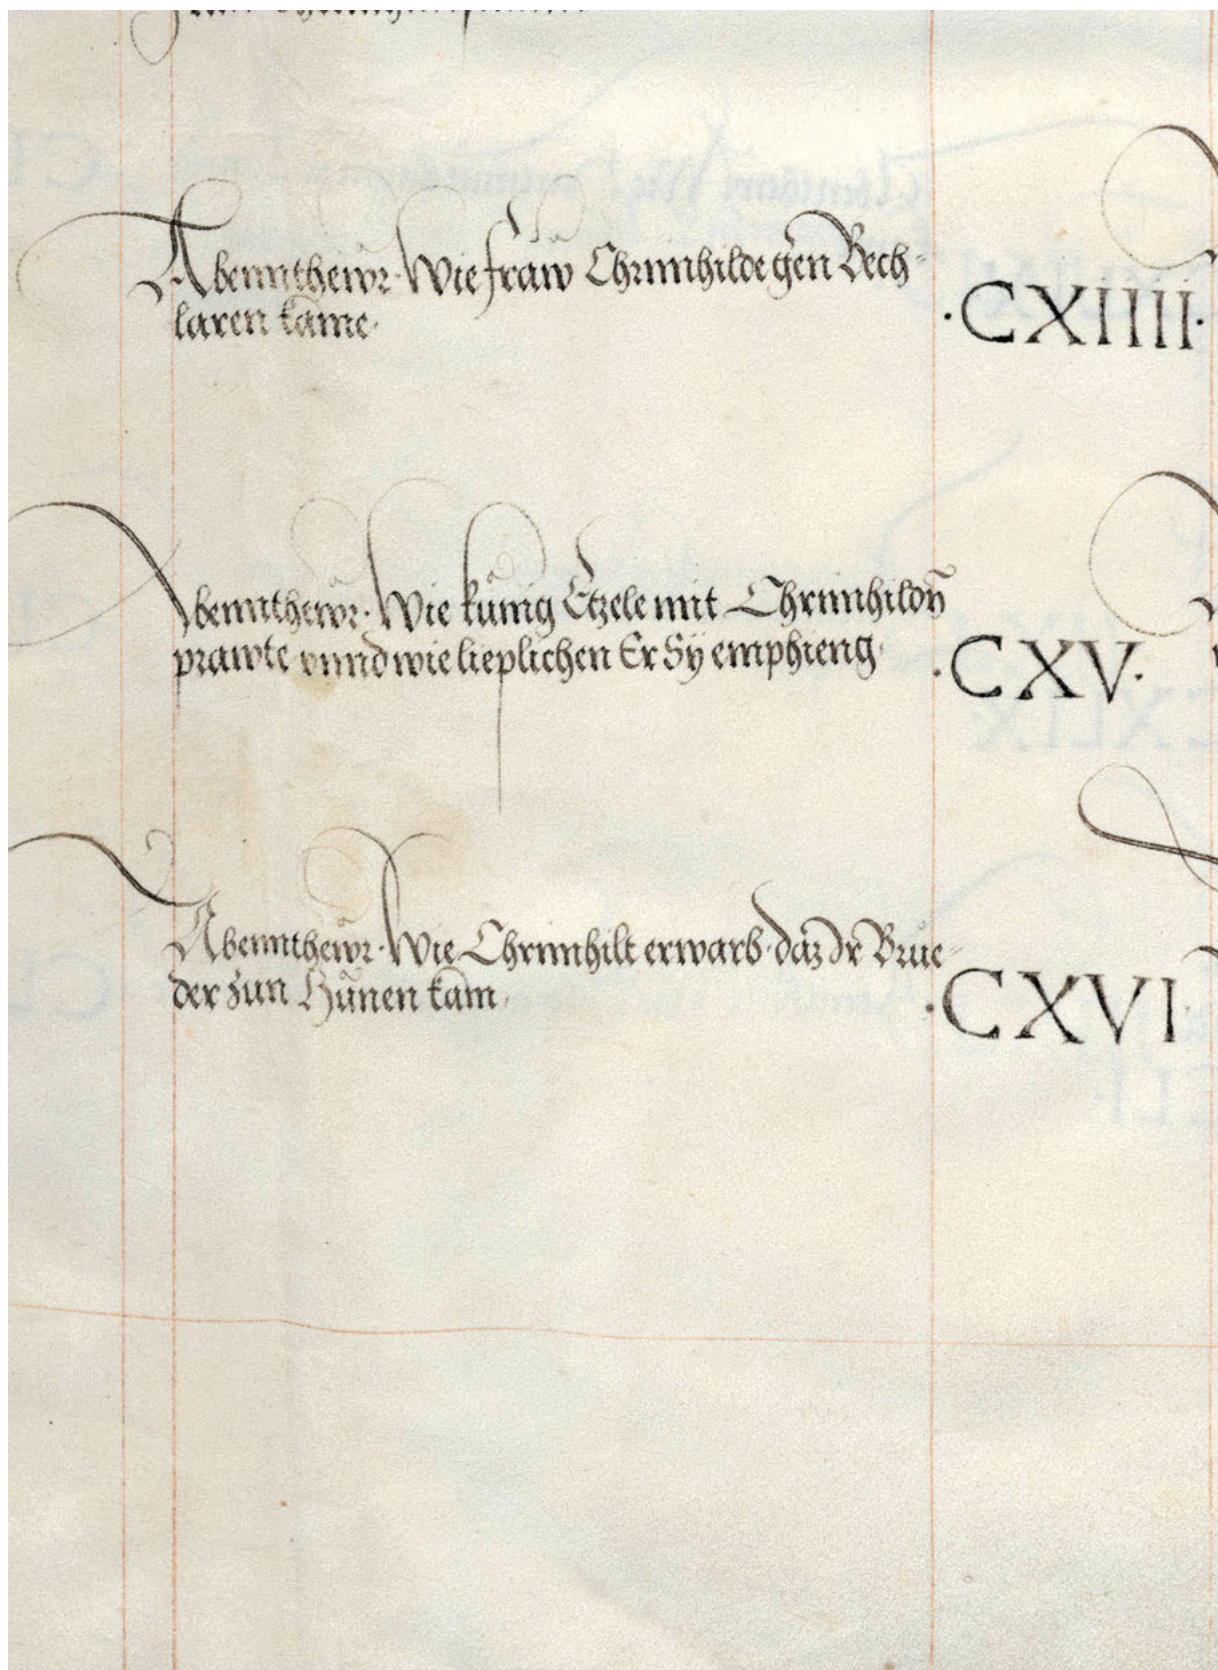 Abenntheŵr· Wie fraw Chrimhilde gen Bech-
laren kame·
·CXIIII·
Abenntheŵr· Wie kunig Etzele mit Chrimhildn̄
prawte vnnd wie lieplichen Er Sÿ emphieng·
·CXV·
Abenntheŵr· Wie Chrimhilt erwarb· daz Ir Brue-
der zun Hunen kam·
·CXVI·